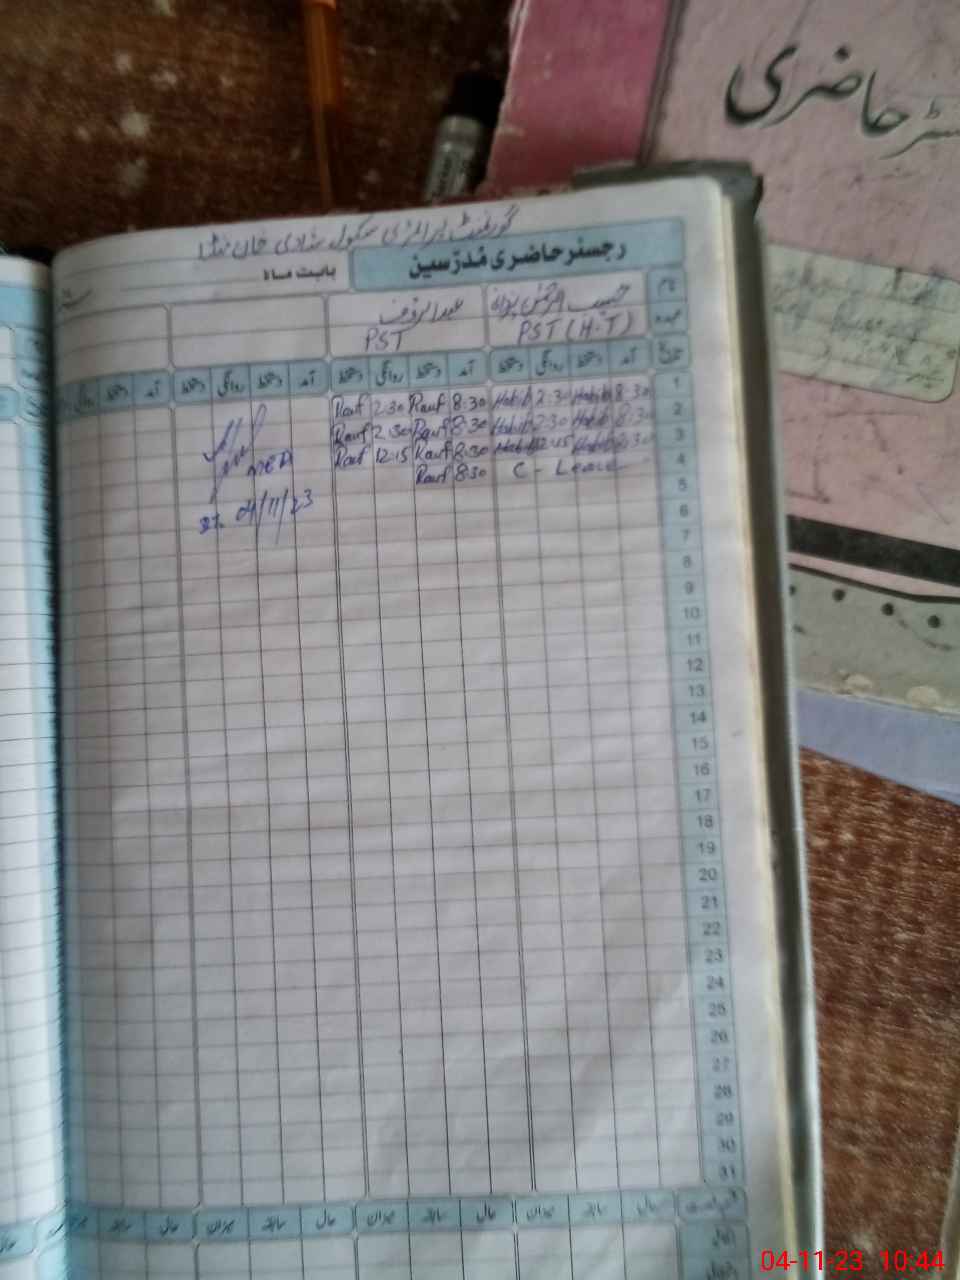 حاضری
گورنمنٹ پرائمری سکول شادی خان
رجسٹر حاضری مُدرّسین
بابت ماہ
نام
عہدہ
حبیب
عبدالرؤف
PST (H-T)
PST
تاریخ
آمد دستخط روانگی دستخط آمد دستخط روانگی دستخط آمد دستخط روانگی دستخط آمد دستخط روانگی
Rauf 2:30 Rauf 8:30 Habib 2:30 Habib 8:30 1
Rauf 2:30 Rauf 8:30 Habib 2:30 Habib 8:30 2
Rauf 12:15 Rauf 8:30 Habib 12:15 Habib 8:30 3
Rauf 8:30 C - Leave 4
04/11/23
5
6
7
8
9
10
11
12
13
14
15
16
17
18
19
20
21
22
23
24
25
26
27
28
29
30
31
حال سابقہ میزان حال سابقہ میزان حال سابقہ میزان حال سابقہ
04-11-23 10:44